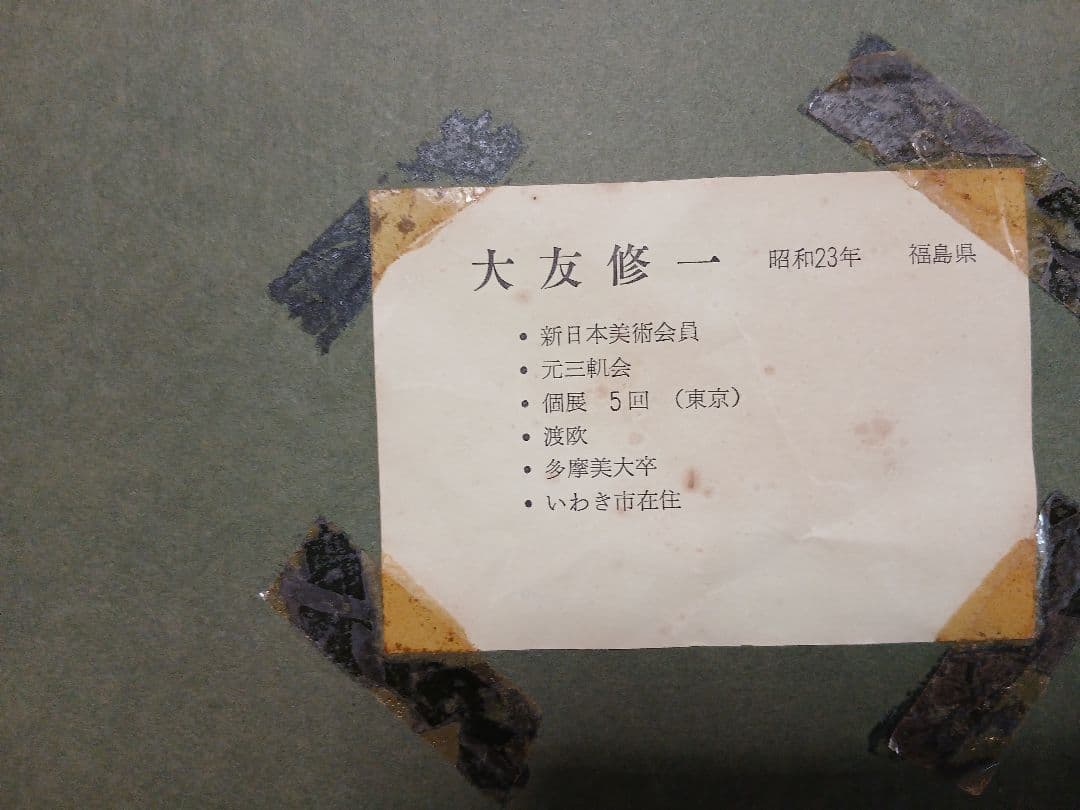 大友修一　昭和23年　福島県
・新日本美術会員
・元三軌会
・個展　5回　（東京）
・渡欧
・多摩美大卒
・いわき市在住